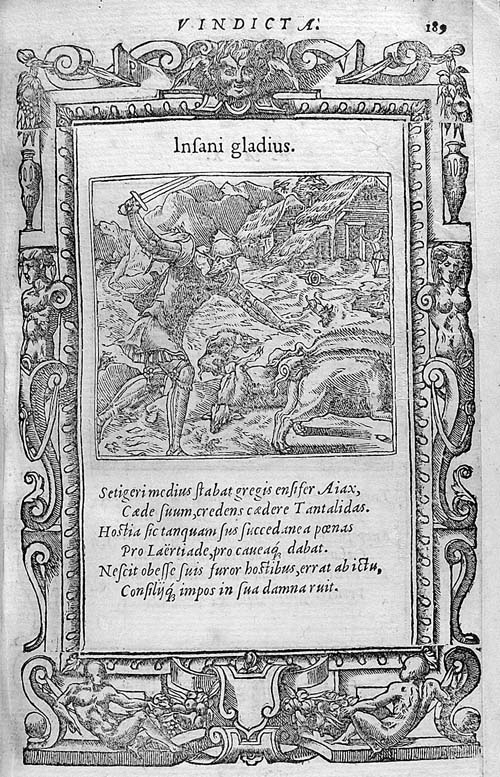 VINDICTA.
189
Insani gladius.
Setigeri medius stabat gregis ensifer Aiax,
Cæde suum, credens cædere Tantalidas.
Hostia sic tanquam sus succedanea pœnas
Pro Laërtiade, pro caueaq́; dabat.
Nescit obesse suis furor hostibus, errat ab ictu,
Consilijq́; impos in sua damna ruit.